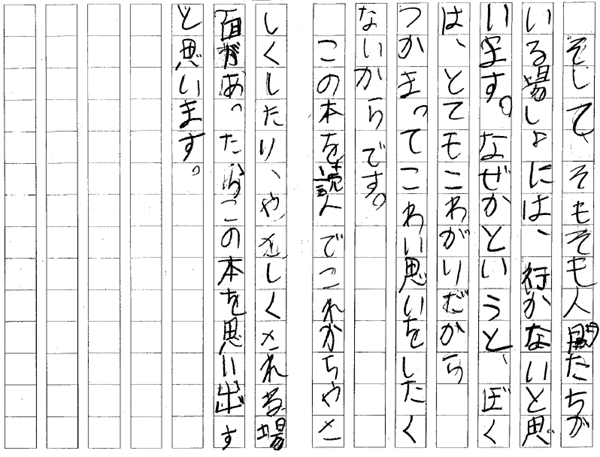 そして、そもそも人間たちが
いる場しょには、行かないと思
います。なぜかというと、ぼく
は、とてもこわがりだから
つかまってこわい思いをしたく
ないからです。
この本を読んでこれからやさ
しくしたり、やさしくされる場
面があったらこの本を思い出す
と思います。